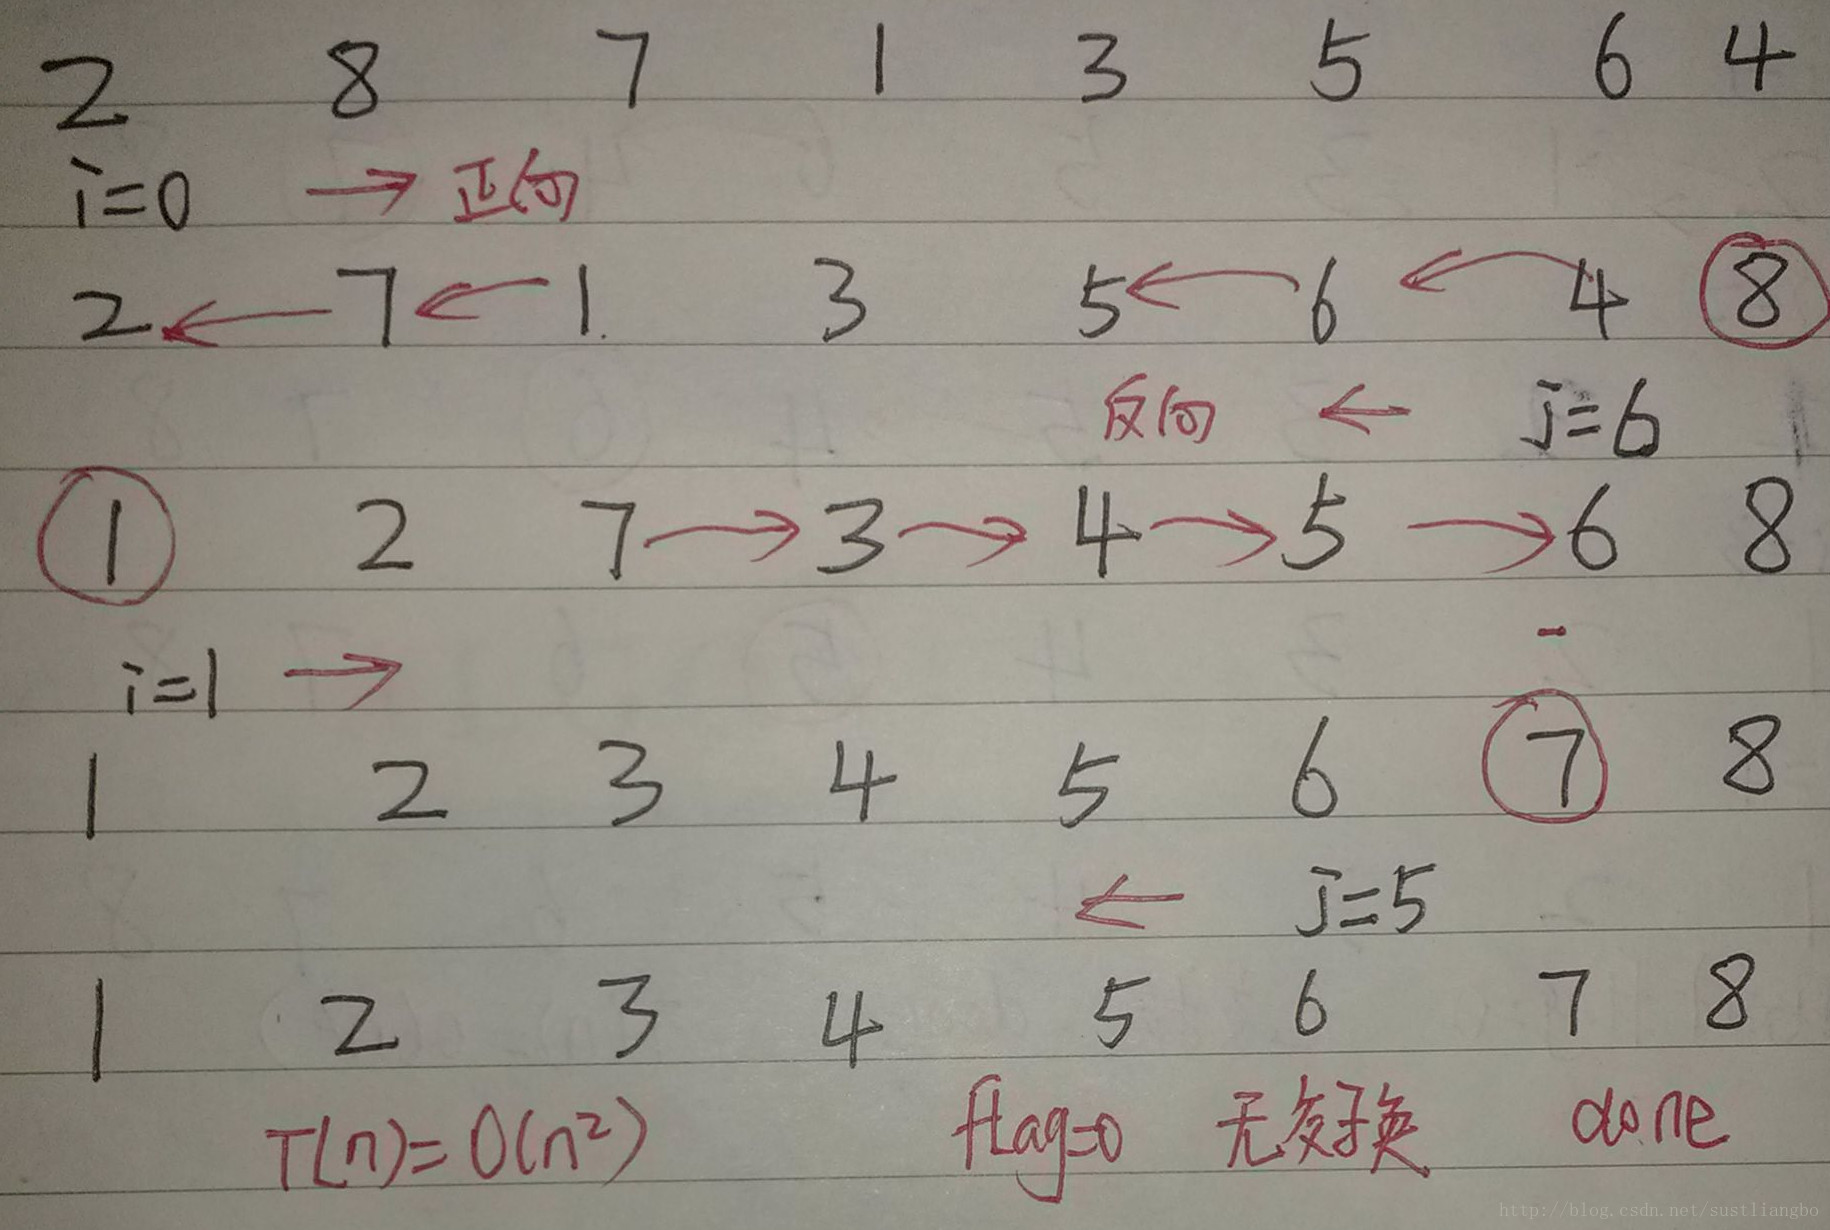 2 8 7 1 3 5 6 4
i=0 → 正向
2 ← 7 ← 1 3 5 ← 6 ← 4 8
反向 ← j=6
1 2 7 → 3 → 4 → 5 → 6 8
i=1 →
1 2 3 4 5 6 7 8
← j=5
1 2 3 4 5 6 7 8
T(n)=O(n²) flag=0 无交换 done
http://blog.csdn.net/sustliangbo